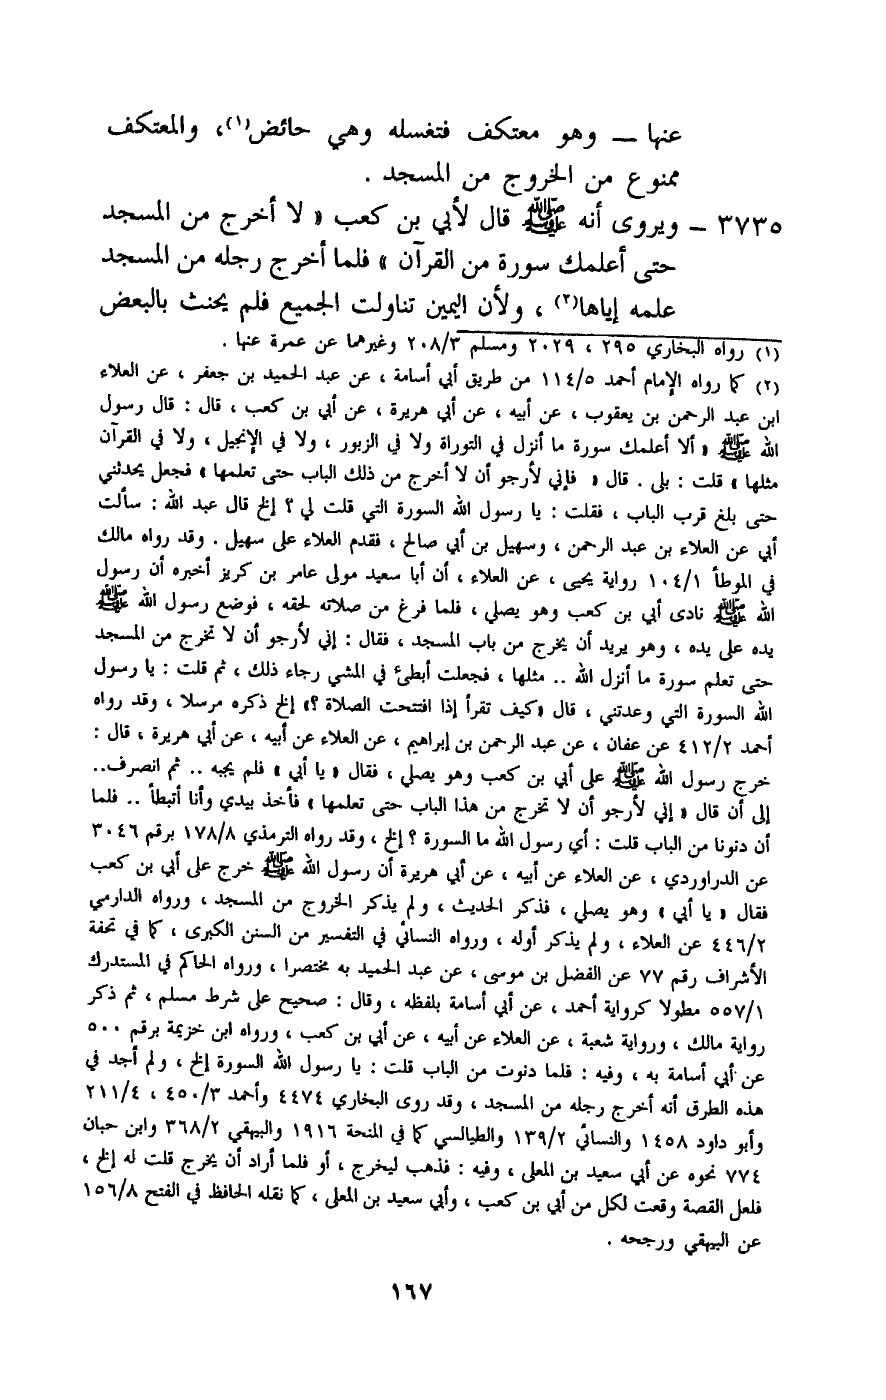 عنها ــ وهو معتكف فتغسله وهي حائض(١)، والمعتكف
ممنوع من الخروج من المسجد .
٣٧٣٥ ــ ويروى أنه ﷺ قال لأبي بن كعب « لا أخرج من المسجد
حتى أعلمك سورة من القرآن » فلما أخرج رجله من المسجد
علمه إياها(٢) ، ولأن اليمين تناولت الجميع فلم يحنث بالبعض
(١) رواه البخاري ٢٩٥ ، ٢٠٢٩ ومسلم ٢٠٨/٣ وغيرهما عن عمرة عنها .
(٢) كما رواه الإمام أحمد ١١٤/٥ من طريق أبي أسامة ، عن عبد الحميد بن جعفر ، عن العلاء
ابن عبد الرحمن بن يعقوب ، عن أبيه ، عن أبي هريرة ، عن أبي بن كعب ، قال : قال رسول
الله ﷺ « ألا أعلمك سورة ما أنزل في التوراة ولا في الزبور ، ولا في الإنجيل ، ولا في القرآن
مثلها » قلت : بلى . قال « فإني لأرجو أن لا أخرج من ذلك الباب حتى تعلمها » فجعل يحدثني
حتى بلغ قرب الباب ، فقلت : يا رسول الله السورة التي قلت لي ؟ إلخ قال عبد الله : سألت
أبي عن العلاء بن عبد الرحمن ، وسهيل بن أبي صالح ، فقدم العلاء على سهيل . وقد رواه مالك
في الموطأ ١٠٤/١ رواية يحيى ، عن العلاء ، أن أبا سعيد مولى عامر بن كريز أخبره أن رسول
الله ﷺ نادى أبي بن كعب وهو يصلي ، فلما فرغ من صلاته لحقه ، فوضع رسول الله ﷺ
يده على يده ، وهو يريد أن يخرج من باب المسجد ، فقال : إني لأرجو أن لا تخرج من المسجد
حتى تعلم سورة ما أنزل الله .. مثلها ، فجعلت أبطئ في المشي رجاء ذلك ، ثم قلت : يا رسول
الله السورة التي وعدتني ، قال «كيف تقرأ إذا افتتحت الصلاة ؟» إلخ ذكره مرسلا ، وقد رواه
أحمد ٤١٢/٢ عن عفان ، عن عبد الرحمن بن إبراهيم ، عن العلاء عن أبيه ، عن أبي هريرة ، قال :
خرج رسول الله ﷺ على أبي بن كعب وهو يصلي ، فقال « يا أبي » فلم يجبه .. ثم انصرف..
إلى أن قال « إني لأرجو أن لا تخرج من هذا الباب حتى تعلمها » فأخذ بيدي وأنا أتبطأ .. فلما
أن دنونا من الباب قلت : أي رسول الله ما السورة ؟ إلخ ، وقد رواه الترمذي ١٧٨/٨ برقم ٣٠٤٦
عن الدراوردي ، عن العلاء عن أبيه ، عن أبي هريرة أن رسول الله ﷺ خرج على أبي بن كعب
فقال « يا أبي » وهو يصلي ، فذكر الحديث ، ولم يذكر الخروج من المسجد ، ورواه الدارمي
٤٤٦/٢ عن العلاء ، ولم يذكر أوله ، ورواه النسائي في التفسير من السنن الكبرى ، كما في تحفة
الأشراف رقم ٧٧ عن الفضل بن موسى ، عن عبد الحميد به مختصرا ، ورواه الحاكم في المستدرك
٥٥٧/١ مطولا كرواية أحمد ، عن أبي أسامة بلفظه ، وقال : صحيح على شرط مسلم ، ثم ذكر
رواية مالك ، ورواية شعبة ، عن العلاء عن أبيه ، عن أبي بن كعب ، ورواه ابن خزيمة برقم ٥٠٠
عن أبي أسامة به ، وفيه : فلما دنوت من الباب قلت : يا رسول الله السورة إلخ ، ولم أجد في
هذه الطرق أنه أخرج رجله من المسجد ، وقد روى البخاري ٤٤٧٤ وأحمد ٤٥٠/٣ ، ٢١١/٤
وأبو داود ١٤٥٨ والنسائي ١٣٩/٢ والطيالسي كما في المنحة ١٩١٦ والبيهقي ٣٦٨/٢ وابن حبان
٧٧٤ نحوه عن أبي سعيد بن المعلى ، وفيه : فذهب ليخرج ، أو فلما أراد أن يخرج قلت له إلخ ،
فلعل القصة وقعت لكل من أبي بن كعب ، وأبي سعيد بن المعلى ، كما نقله الحافظ في الفتح ١٥٦/٨
عن البيهقي ورجحه .
١٦٧